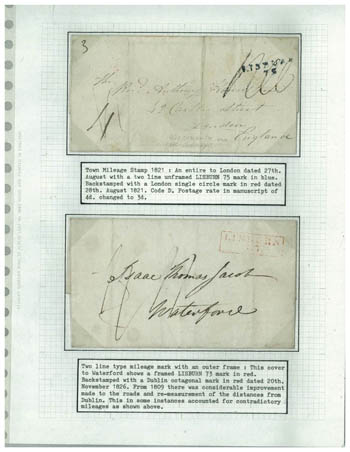 3
The
London
England
LISBURN
75
Town Mileage Stamp 1821 : An entire to London dated 27th.
August with a two line unframed LISBURN 75 mark in blue.
Backstamped with a London single circle mark in red dated
28th. August 1821. Code D. Postage rate in manuscript of
4d. changed to 3d.
LISBURN
Isaac Thomas Jacob
Waterford
Two line type mileage mark with an outer frame : This cover
to Waterford shows a framed LISBURN 73 mark in red.
Backstamped with a Dublin octagonal mark in red dated 20th.
November 1826. From 1809 there was considerable improvement
made to the roads and re-measurement of the distances from
Dublin. This in some instances accounted for contradictory
mileages as shown above.